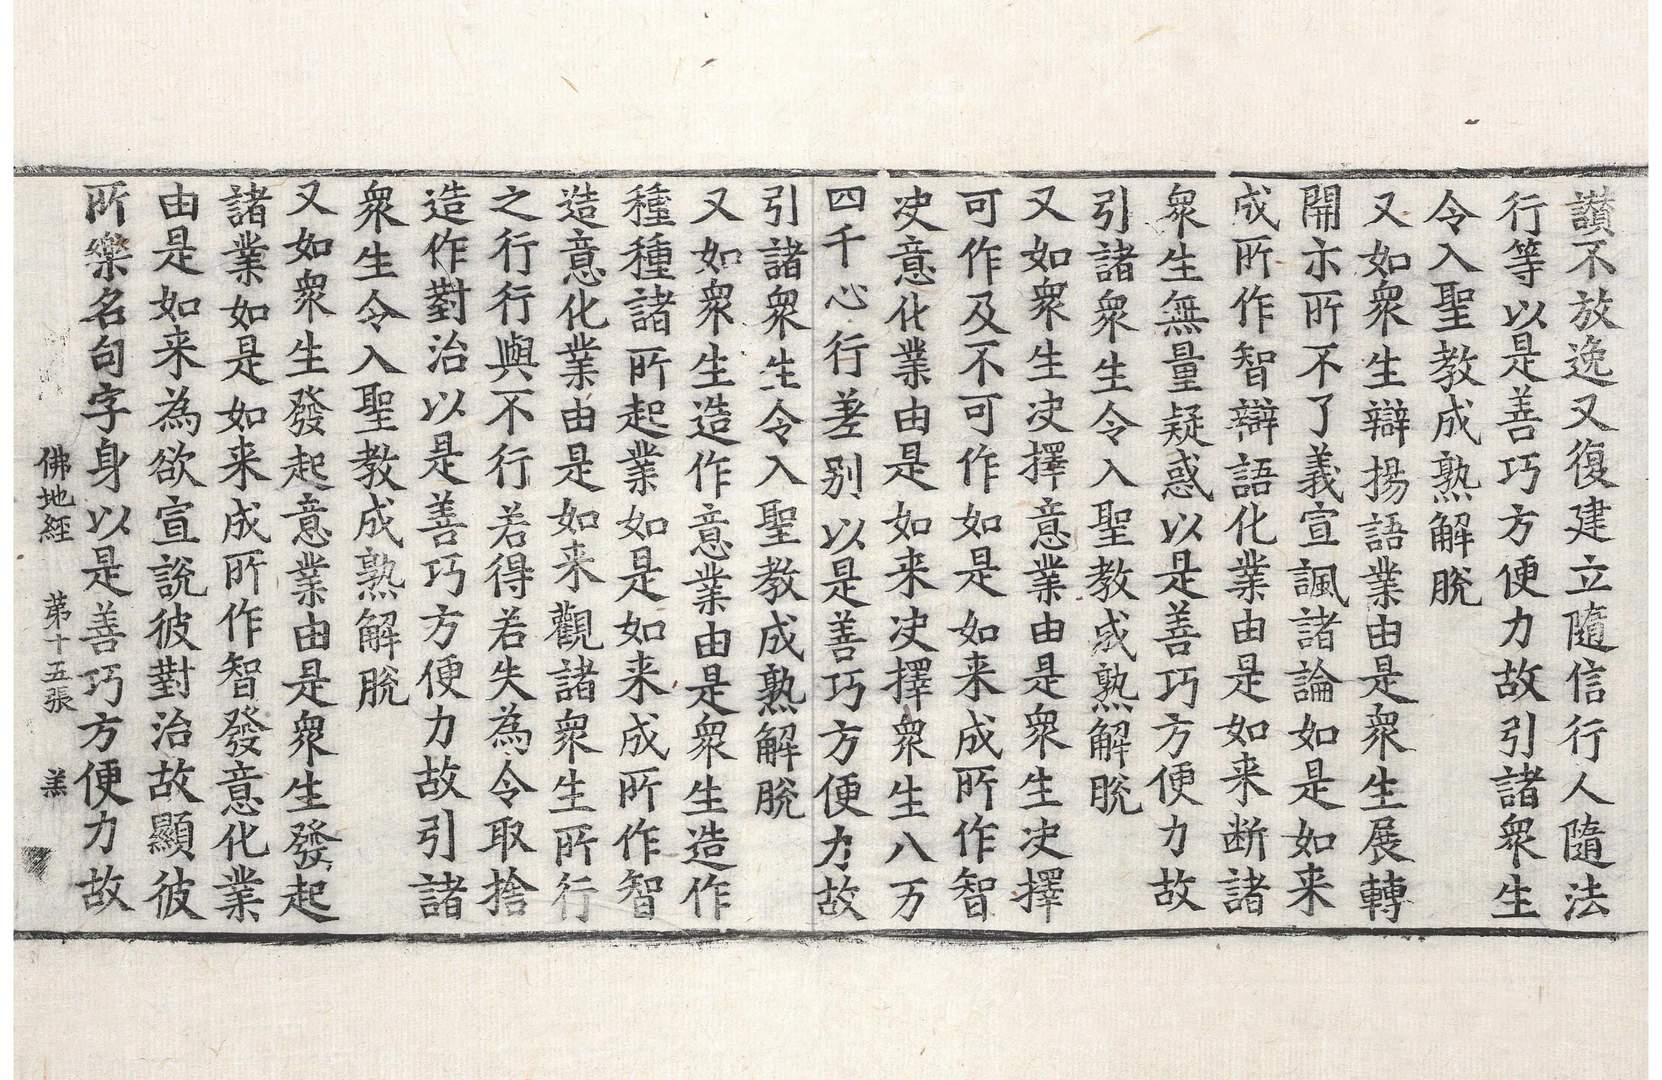 讃不放逸又復建立隨信行人隨法
行等以是善巧方便力故引諸衆生
令入聖教成熟解脫
又如衆生辯揚語業由是衆生展轉
開示所不了義宣諷諸論如是如来
成所作智辯語化業由是如来断諸
衆生無量疑惑以是善巧方便力故
引諸衆生令入聖教成熟解脫
又如衆生决擇意業由是衆生决擇
可作及不可作如是如来成所作智
决意化業由是如来决擇衆生八万
四千心行差别以是善巧方便力故
引諸衆生令入聖教成熟解脫
又如衆生造作意業由是衆生造作
種種諸所起業如是如来成所作智
造意化業由是如来觀諸衆生所行
之行行與不行若得若失為令取捨
造作對治以是善巧方便力故引諸
衆生令入聖教成熟解脫
又如衆生發起意業由是衆生發起
諸業如是如来成所作智發意化業
由是如来為欲宣說彼對治故顯彼
所樂名句字身以是善巧方便力故
佛地經 苐十五張 羔